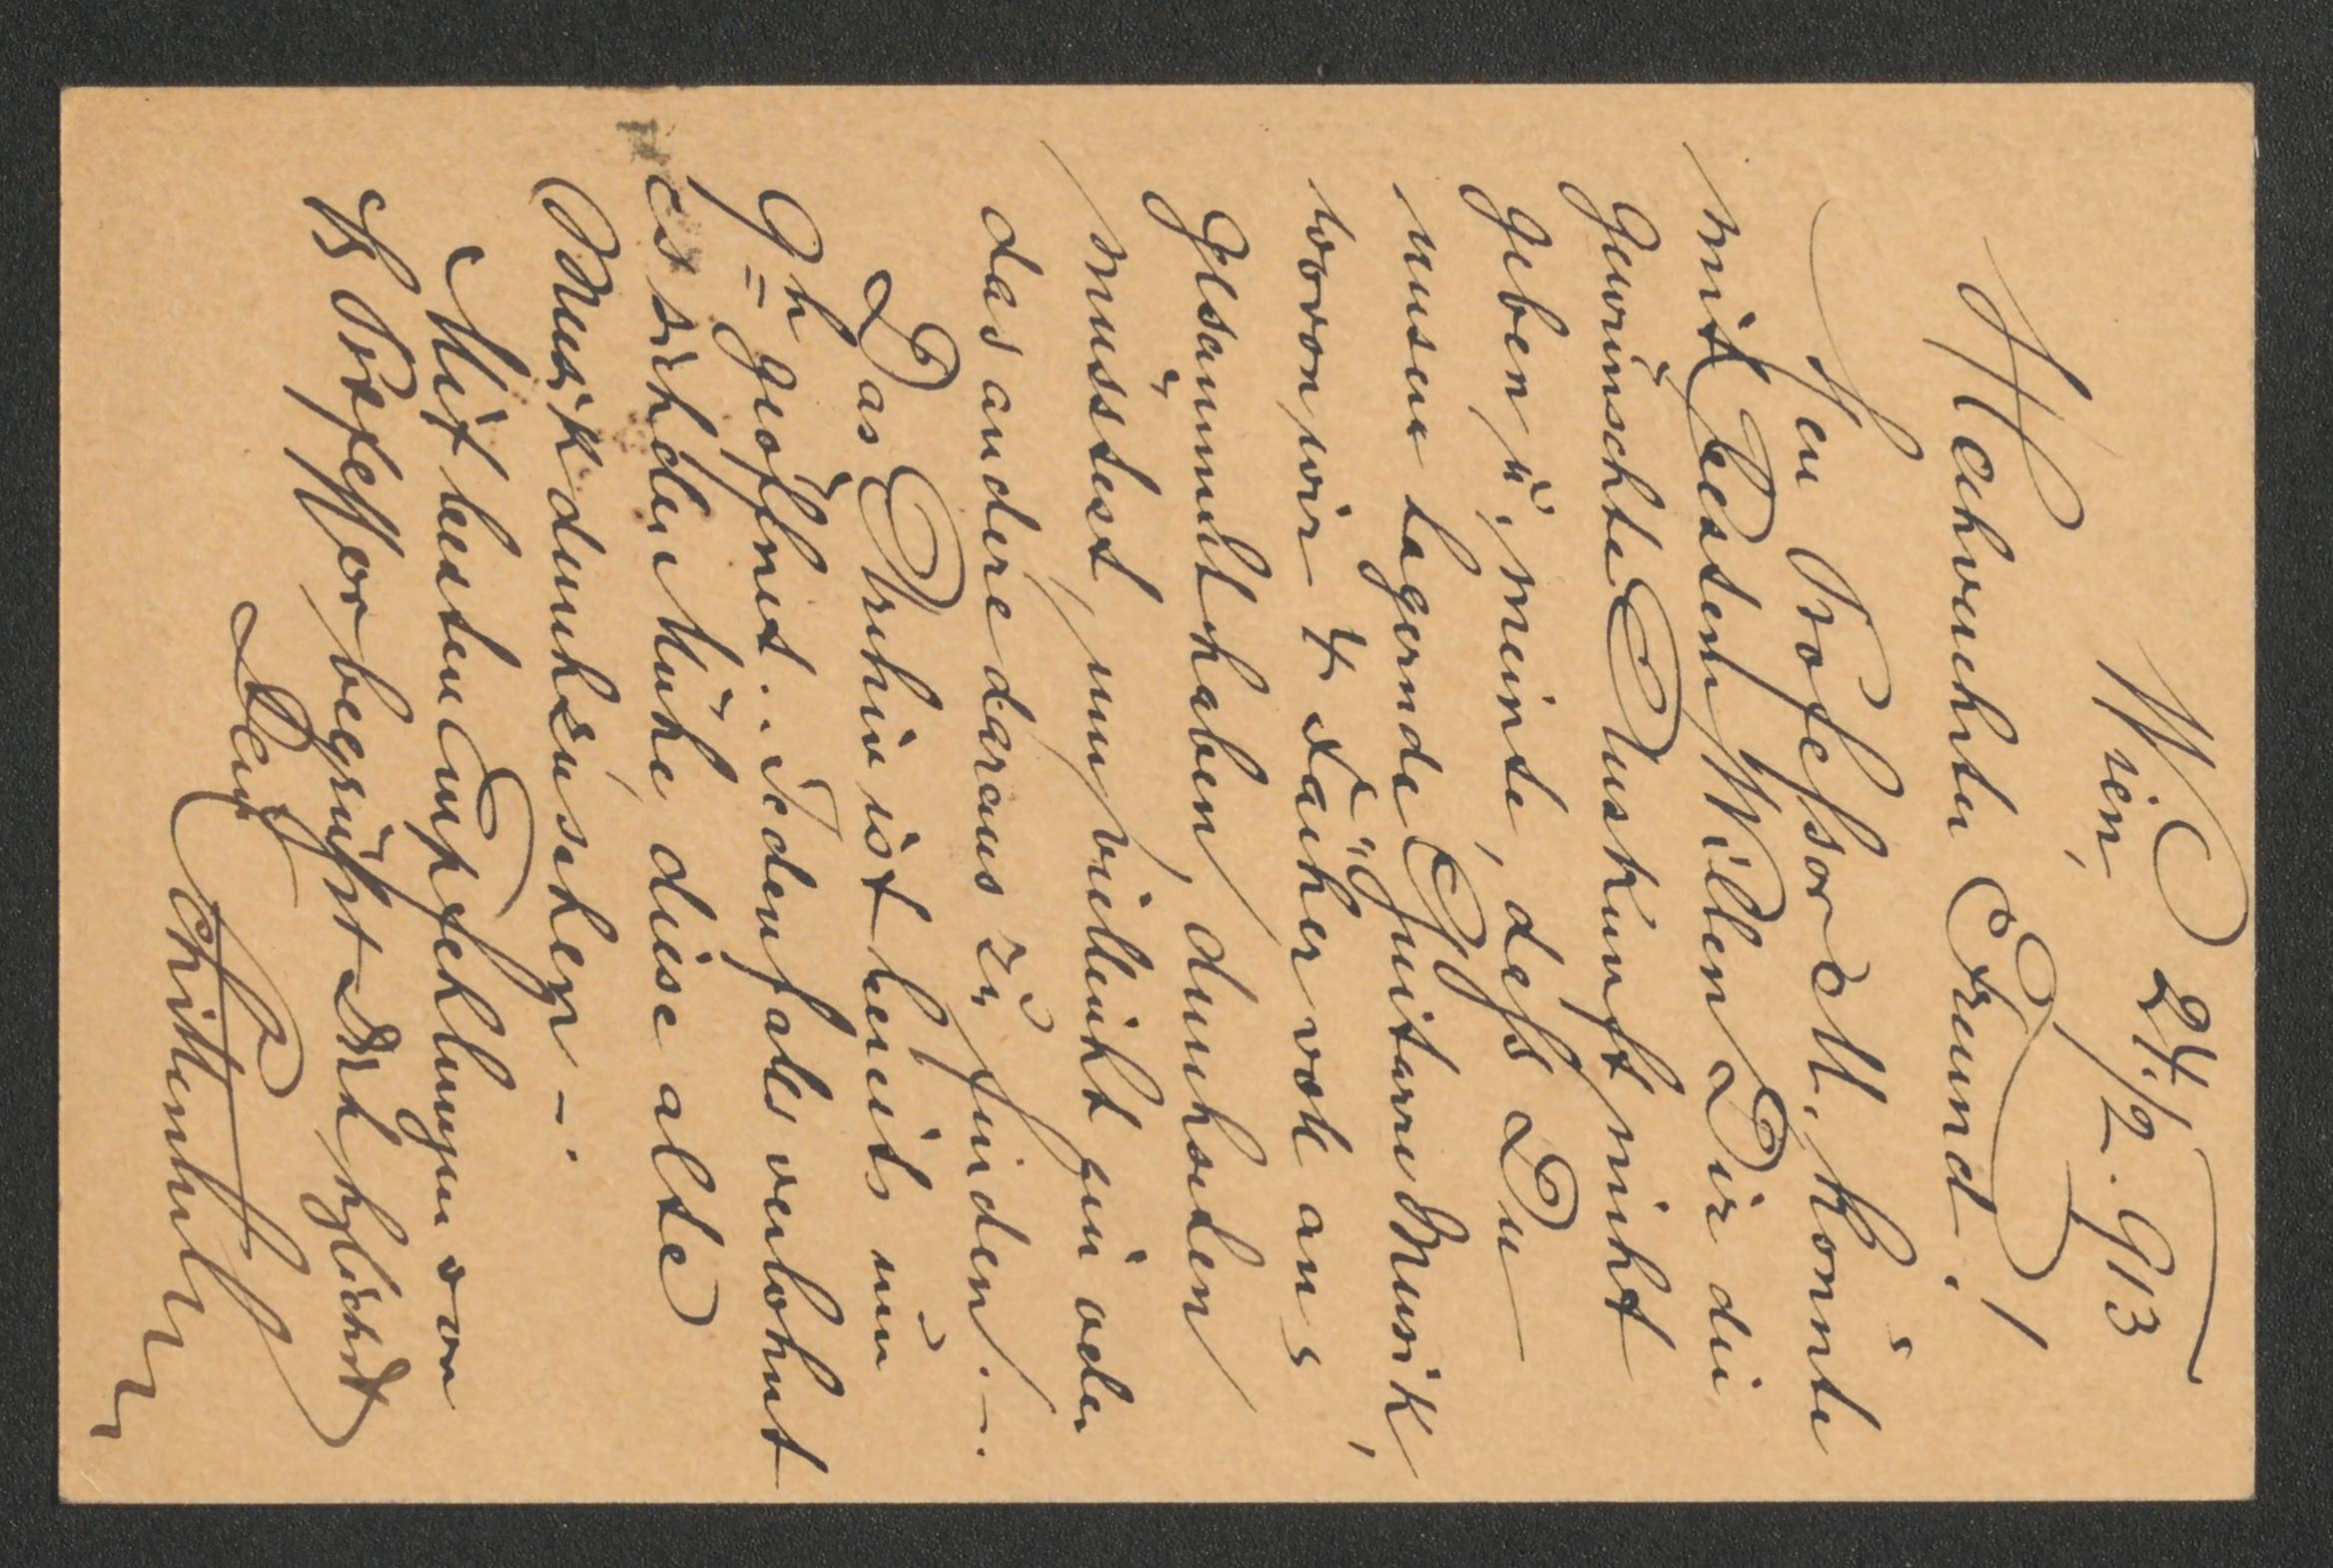 Wien, 24./2. 913
Hochverehrter Freund!
Herr Professor M. konnte
mit bestem Willen Dir die
gewünschte Auskunft nicht
geben u. meinte, daß Du
unsere lagernde Guitarre Musik,
wovon wir 4 Fächer voll an-
gesammelt haben, durchsehen
müsstest, um vielleicht ein oder
das andere daraus zu finden. –.
Das Archiv ist bereits um
9h geöffnet. Jedenfalls verlohnt
es sich der Mühe, diese alte
Musik durchzusehen –.
Mit besten Empfehlungen von
H Professor begrüßt Dich hzlichst
Dein